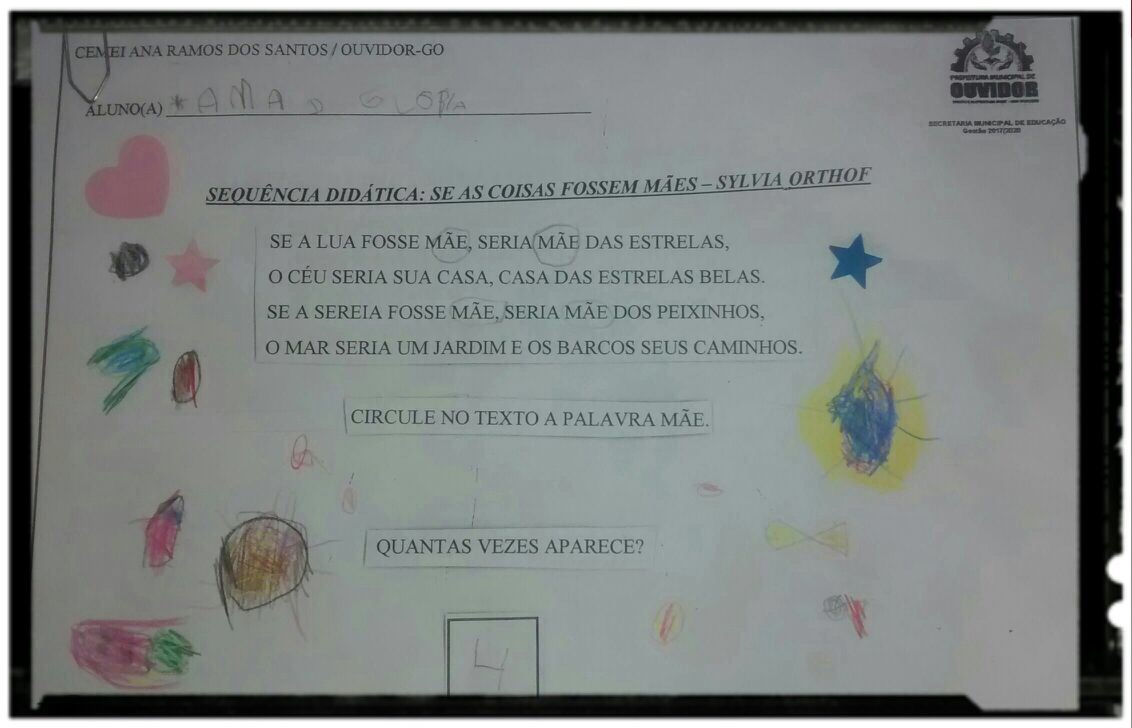 CEMEI ANA RAMOS DOS SANTOS / OUVIDOR-GO
PREFEITURA MUNICIPAL DE
OUVIDOR
SECRETARIA MUNICIPAL DE EDUCAÇÃO
Gestão 2017/2020
ALUNO(A) * AMA D GLORIA
SEQUÊNCIA DIDÁTICA: SE AS COISAS FOSSEM MÃES – SYLVIA ORTHOF
SE A LUA FOSSE MÃE, SERIA MÃE DAS ESTRELAS,
O CÉU SERIA SUA CASA, CASA DAS ESTRELAS BELAS.
SE A SEREIA FOSSE MÃE, SERIA MÃE DOS PEIXINHOS,
O MAR SERIA UM JARDIM E OS BARCOS SEUS CAMINHOS.
CIRCULE NO TEXTO A PALAVRA MÃE.
QUANTAS VEZES APARECE?
4